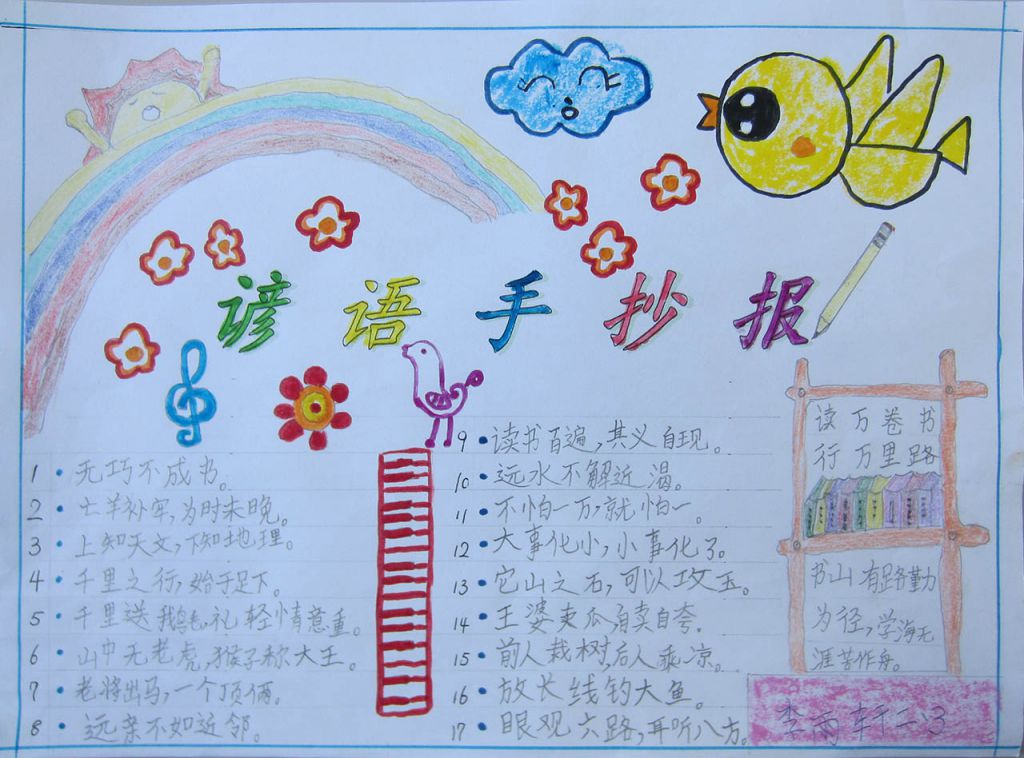 谚语手抄报
1 · 无巧不成书。
2 · 亡羊补牢,为时未晚。
3 · 上知天文,下知地理。
4 · 千里之行,始于足下。
5 · 千里送鹅毛,礼轻情意重。
6 · 山中无老虎,猴子称大王。
7 · 老将出马,一个顶俩。
8 · 远亲不如近邻。
9 · 读书百遍,其义自现。
10 · 远水不解近渴。
11 · 不怕一万,就怕一。
12 · 大事化小,小事化了。
13 · 它山之石,可以攻玉。
14 · 王婆卖瓜,自卖自夸。
15 · 前人栽树,后人乘凉。
16 · 放长线钓大鱼。
17 · 眼观六路,耳听八方。
读万卷书
行万里路
书山有路勤
为径,学海无
涯苦作舟。
李雨轩二